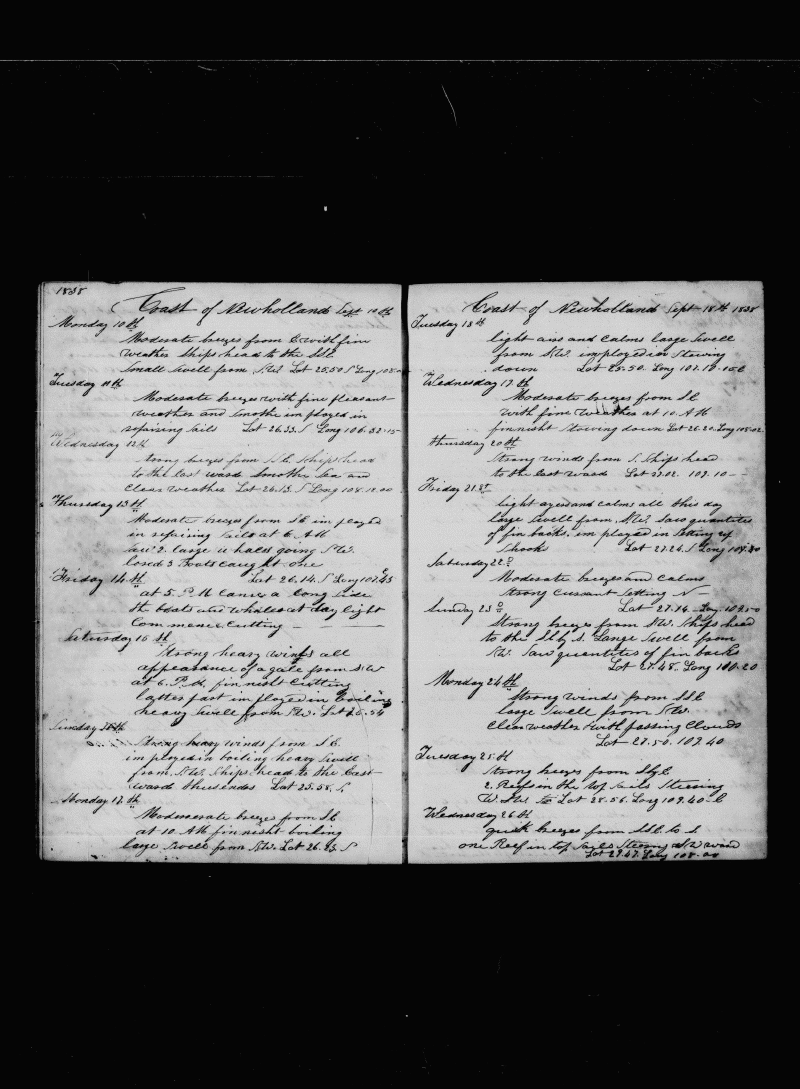 1838
Coast of Newholland Sept 10th
Monday 10th
Moderate brezes from E with fine
weather Ships head to the SSE
Small Swell from SW Lat 25.50 S Long 108.0
Tuesday 11th
Moderate brezes with fine pleasant
weather and smothe imployed in
repairing sails Lat 26.33. S Long 106.32.15
Wednesday 12th
trong brezes from S.E. Ships head
to the East ward Smothe Sea and
Clear weather Lat 26.13. S Long 108.12.00
Thursday 13th
Moderate brezes from SE im ployed
in repairing Sails at 6 AM
saw 2 large whales going SW.
lowed 3 Boats caught one
Friday 14th Lat 26.14. S Long 107.45
at 5. P.M Came a long Side
the boats and whales at day light
Commence Cutting
Saturday 15th
Strong heavy winds all
appearance of a gale from SW
at 6. P.M. fin nisht Cutting
Latter part im ployed in boiling
heavy Swell from SW. Lat 25.54
Sunday 16th
Strong heavy winds from SE
im ployed in boiling heavy Swell
from SW. Ships head to the East
ward thus ends Lat 25.58. S
Monday 17.th
Moderate brezes from SE
at 10 AM fin nisht boiling
large Swell from SW. Lat 26.23 S
Coast of Newholland Sept 18th 1838
Tuesday 18th
light airs and Calms large Swell
from SW. imployed in Stowing
down Lat 25.50. Long 107.10
Wednesday 19th
Moderate brezes from SE
with fine weather at 10. AM
fin nisht Stowing down Lat 26.20. Long 108.02
Thursday 20th
Strong winds from S. Ships head
to the East ward Lat 27.02. 109.10
Friday 21st
light ayes and Calms all this day
large Swell from SW. Saw quantites
of fin backs. im ployed in Setting up
Shooks Lat 27.24. S Long 109.30
Saturday 22d
Moderate brezes and Calms
Strong Current Setting N
Sunday 23d Lat 27.14 Long. 109.50
Strong brezes from SW. Ships head
to the SE by S. Large Swell from
SW. Saw quantites of fin backs
Lat 27.48. Long 110.20
Monday 24th
Strong winds from SSE
large Swell from SW.
Clear weather with passing Clouds
Lat 27.50. 109.40
Tuesday 25th
Strong brezes from S by E
2. Reefs in the top Sails Stearing
W.SW. Lat 28.56. Long 109.40 E
Wednesday 26th
quick brezes from SSE to S
one Reef in top Sails Stearing SW ward
Lat 29.47. Long 108.00